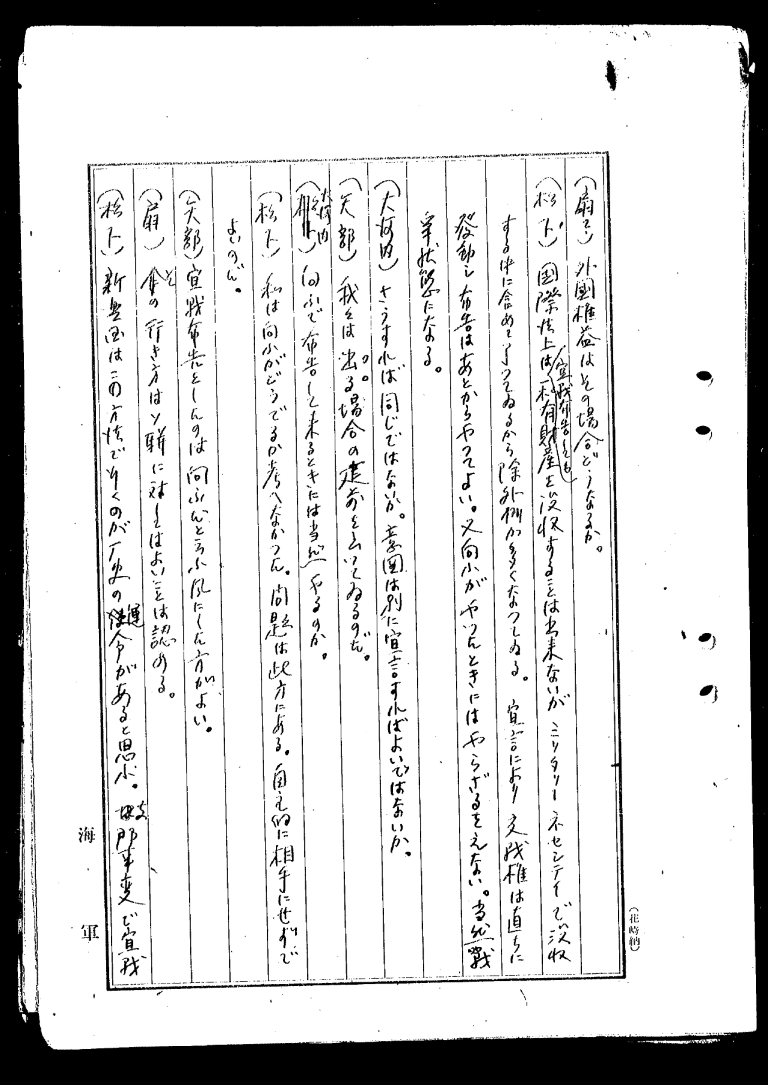 (扇) 外国権益はその場合どうなるか。
(松下) 国際法上は(宣戦布告しても)私有財産を没収することは出来ないが ミリタリーネセシテイで没収
する中に含めて了つてゐるから除外例が多くなつてゐる。宣言により交戦権は直ちに
発動し布告はあとからやつてよい。又向ふがやつたときにはやらざるをえない。当然戦
争状態になる。
(大河内) さうすれば同じではないか。意図は別に宣言すればよいではないか。
(矢部) 我々は出る場合の建前を云つてゐるのだ。
(大河内) 向ふで布告して来るときには当然やるのか。
(松下) 私は向ふがどうでるか考へなかつた。問題は此方にある。自主的に相手にせずで
よいのだ。
(矢部) 宣戦布告をしたのは向ふだと云ふ風にした方がよい。
(扇) その行き方はソ聯に対してはよいことは認める。
(松下) 新興国はこの方法で行くのが歴史の運命があると思ふ。支那事変で宣戦
海軍